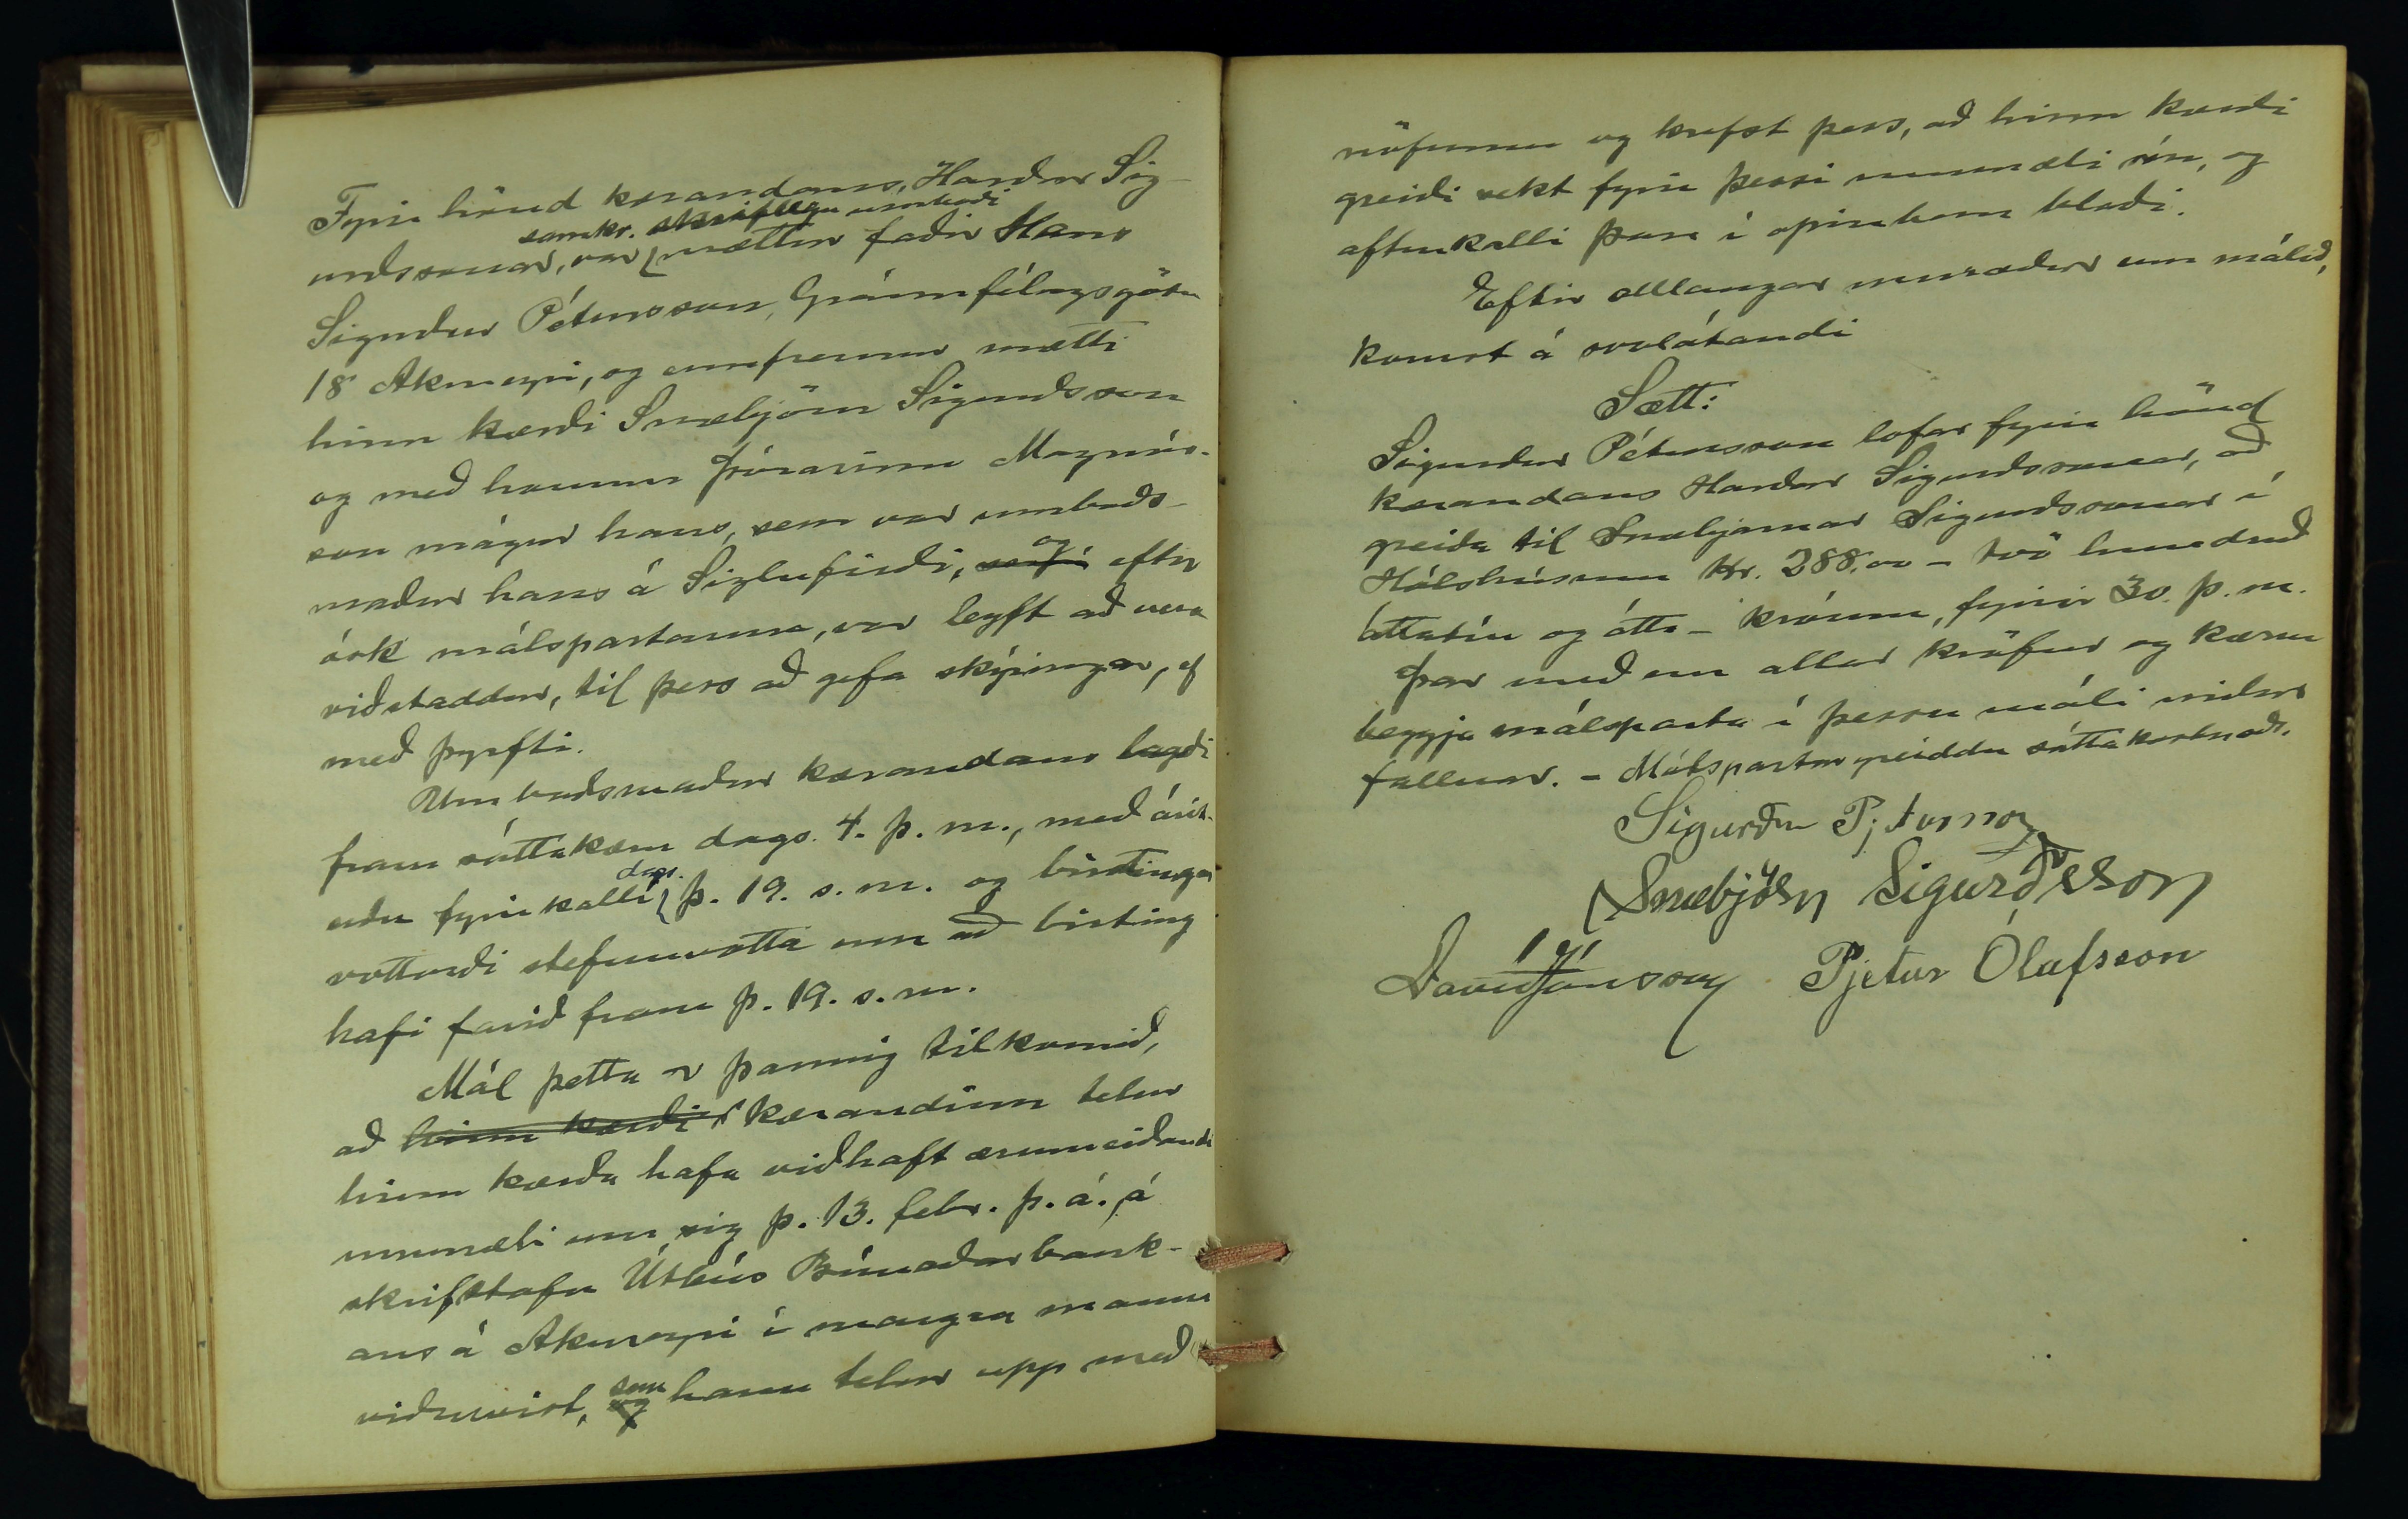 Fyrir hönd kærandans, Harðar Sig-
samkv. skriflegu umboði
urðssonar, var mættur faðir Hans
Sigurður Pétursson, Gránufélagsgötu
18 Akureyri, og ennfremur mætti
hinn kærði Snæbjörn Sigurðsson
og með honum Þórarinn Magnús-
son mágur hans, sem var umboðs-
maður hans á Siglufirði, og eftir
ósk málspartanna, var leyft að vera
viðstaddur, til þess að gefa skýringar, ef
með þyrfti.
Umboðsmaður kærandans lagði
fram sáttakæru dags. 4. þ. m., með árit-
uðu fyrirkalli dags. þ. 19. s. m. og birtingar
vottorði stefnuvotta um að birting
hafi farið fram þ. 19. s. m.
Mál þetta er þannig tilkomið,
að hinn kærði kærandinn telur
hinn kærða hafa viðhaft ærumeiðandi
ummæli um sig þ. 13. febr. þ. á., á
skrifstofu Útbús Búnaðarbank-
ans á Akureyri í margra manna
viðurvist, sem hann telur upp með
nöfnum og krefst þess, að hinn kærði
greiði sekt fyrir þessi ummæli sín, og
afturkalli þau í opinberu blaði.
Eftir alllangar umræður um málið,
komst á svolátandi
Sætt:
Sigurður Pétursson lofar fyrir hönd
kærandans Harðar Sigurðssonar, að
greiða til Snæbjarnar Sigurðssonar í
Hólshúsum kr. 288.00 - tvö hundruð
áttatíu og átta - krónur, fyrir 30. þ. m.
Þar með eru allar kröfur og kærur
beggja málsparta í þessu máli niður
fallnar. - Málspartar greiddu sáttakostnað.
Sigurður Pjetursson
Snæbjörn Sigurðsson
Davíð Jónsson Pjetur Ólafsson